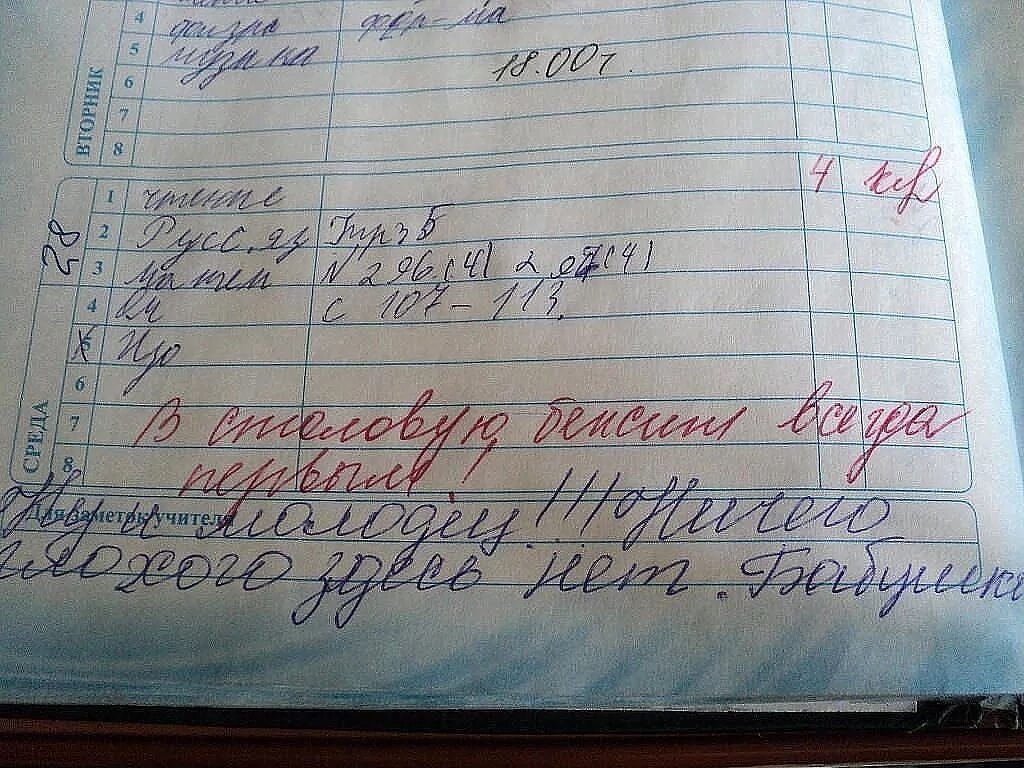 4 физра фор-ма
5 музыка
6 18.00г.
7
8
ВТОРНИК
1 чтение 4
2 Русс.яз Упр 35
3 матем N 296.(4) 297(4)
4 с 107-113.
5 Изо
6
7 В столовую бежит всегда
8 первым!
28
СРЕДА
Для заметок учителя
Ну и молодец!!! Ничего
плохого здесь нет. Бабушка